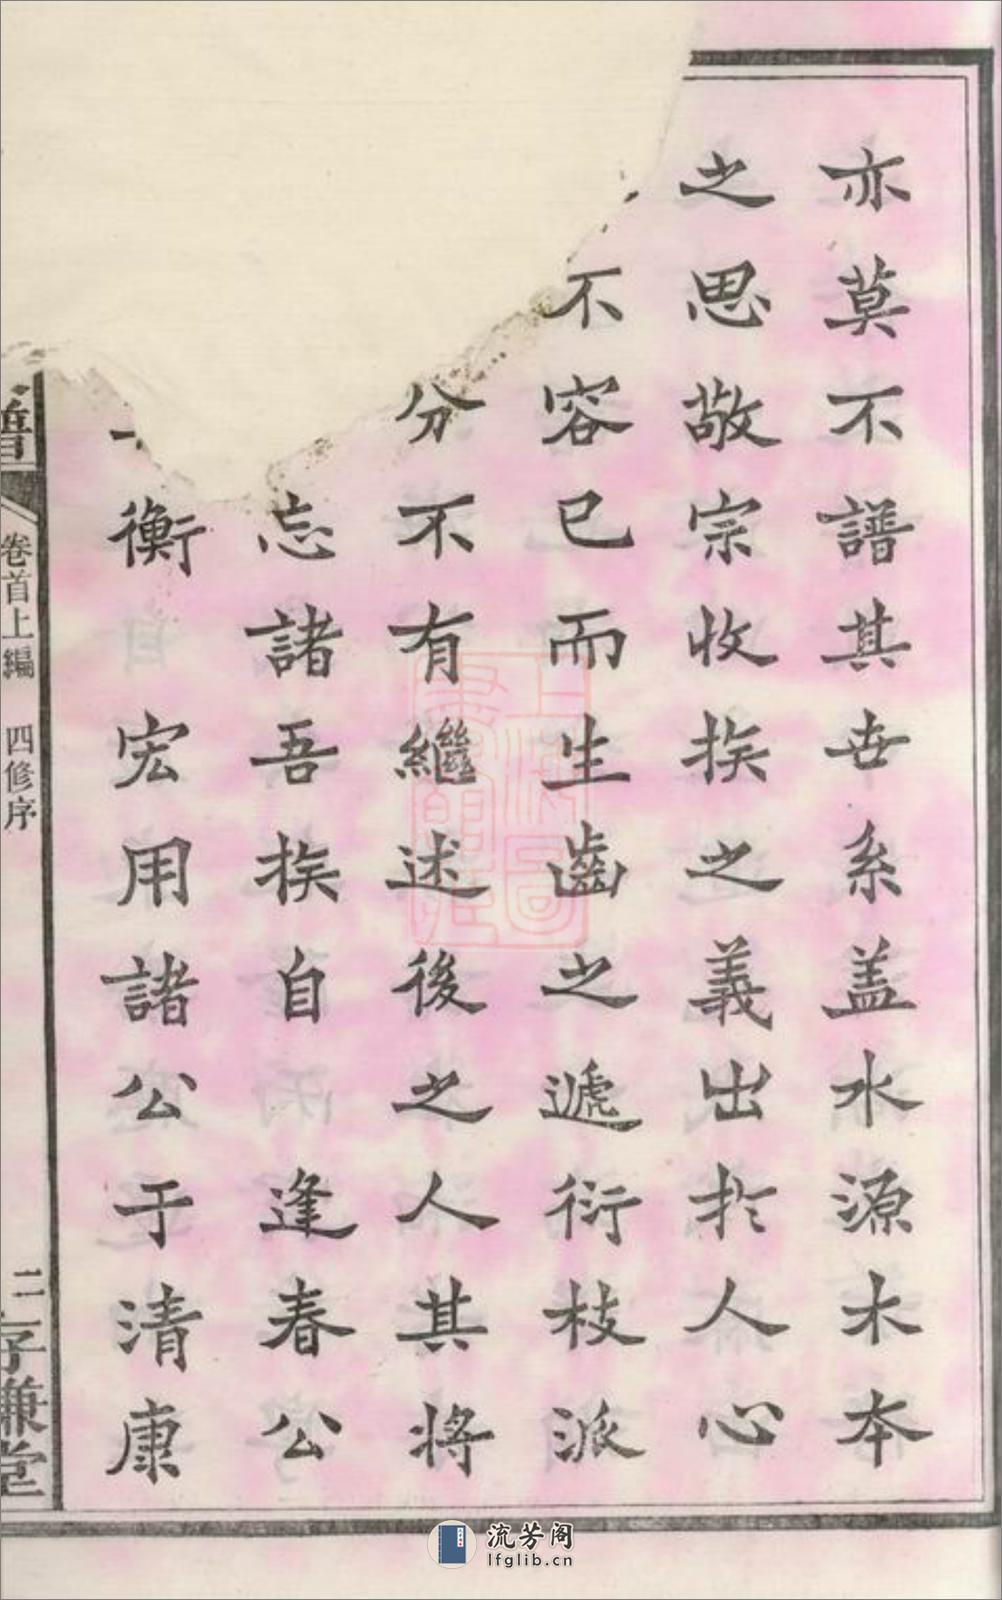 亦莫不譜其世系盖水源木本
之思敬宗收族之義出扵人心
不容已而生齒之遞衍枝派
分不有繼述後之人其將
忘諸吾族自逢春公
衡宏用諸公于清康
譜
卷首上編 四修序
二
存謙堂
流芳阁
lfglib.cn